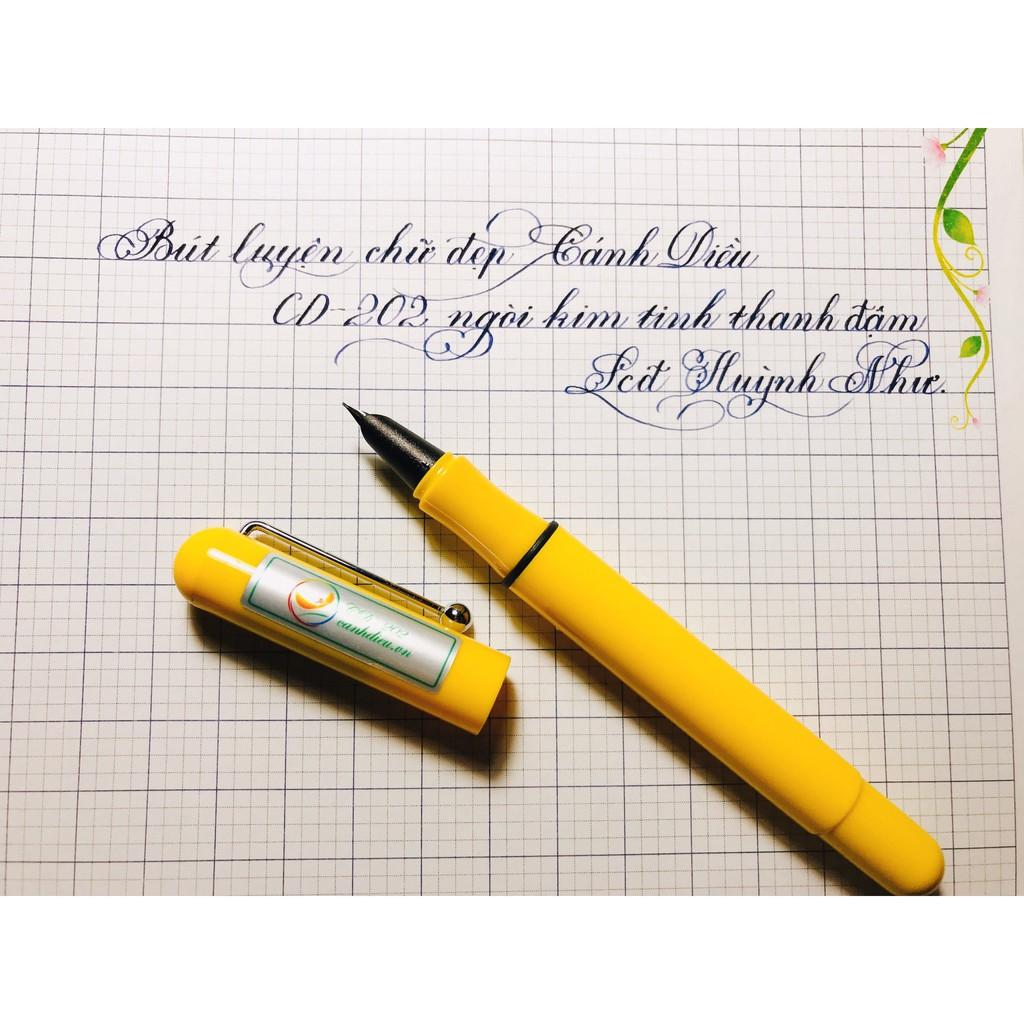 Bút luyện chữ đẹp Cánh Diều
CD-202 ngòi kim tinh thanh đậm
Lcđ Huỳnh Như.
202
canhdieu.vn